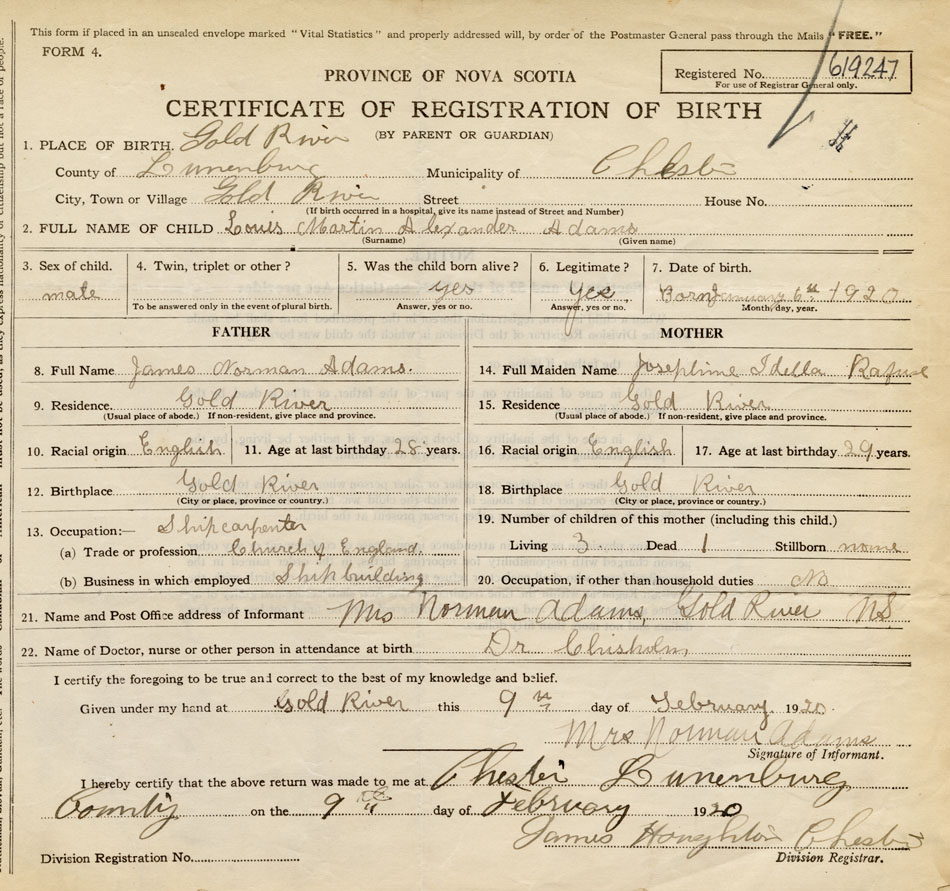 This form if placed in an unsealed envelope marked "Vital Statistics" and properly addressed will, by order of the Postmaster General pass through the Mails "FREE."
FORM 4.
Registered No. 619247
For use of Registrar General only.
PROVINCE OF NOVA SCOTIA
CERTIFICATE OF REGISTRATION OF BIRTH
(BY PARENT OR GUARDIAN)
1. PLACE OF BIRTH. Gold River
County of Lunenburg Municipality of Chester
City, Town or Village Gold River Street House No.
(If birth occurred in a hospital, give its name instead of Street and Number)
2. FULL NAME OF CHILD Louis Martin Alexander Adams
(Surname) (Given name)
3. Sex of child. 4. Twin, triplet or other? 5. Was the child born alive? 6. Legitimate? 7. Date of birth.
male yes Yes Born January 6th 1920
To be answered only in the event of plural birth. Answer, yes or no. Answer, yes or no. Month, day, year.
FATHER MOTHER
8. Full Name James Norman Adams. 14. Full Maiden Name Josephine Idella Rafuse
9. Residence. Gold River 15. Residence Gold River
(Usual place of abode.) If non-resident, give place and province. (Usual place of abode.) If non-resident, give place and province.
10. Racial origin English 11. Age at last birthday 28 years. 16. Racial origin English 17. Age at last birthday 29 years.
12. Birthplace Gold River 18. Birthplace Gold River
(City or place, province or country.) (City or place, province or country.)
13. Occupation:— Shipcarpenter 19. Number of children of this mother (including this child.)
(a) Trade or profession Church of England. Living 3 Dead 1 Stillborn none
(b) Business in which employed Shipbuilding 20. Occupation, if other than household duties No
21. Name and Post Office address of Informant Mrs Norman Adams, Gold River NS.
22. Name of Doctor, nurse or other person in attendance at birth Dr Chisholm
I certify the foregoing to be true and correct to the best of my knowledge and belief.
Given under my hand at Gold River this 9th day of February 1920.
Mrs Norman Adams
Signature of Informant.
I hereby certify that the above return was made to me at Chester Lunenburg
County on the 9th day of February 1920
James Houghton Chester
Division Registration No. Division Registrar.